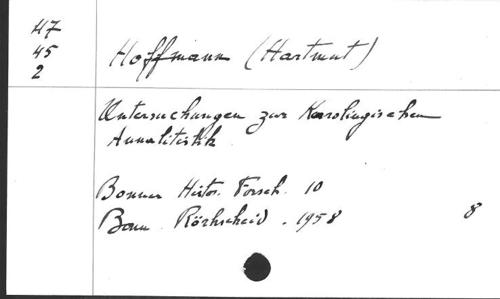 H7
45
2
Hoffmann (Hartmut)
Untersuchungen zur Karolingischen
Annalistik
Bonner Histor. Forsch. 10
Bonn. Röhrscheid. 1958
8